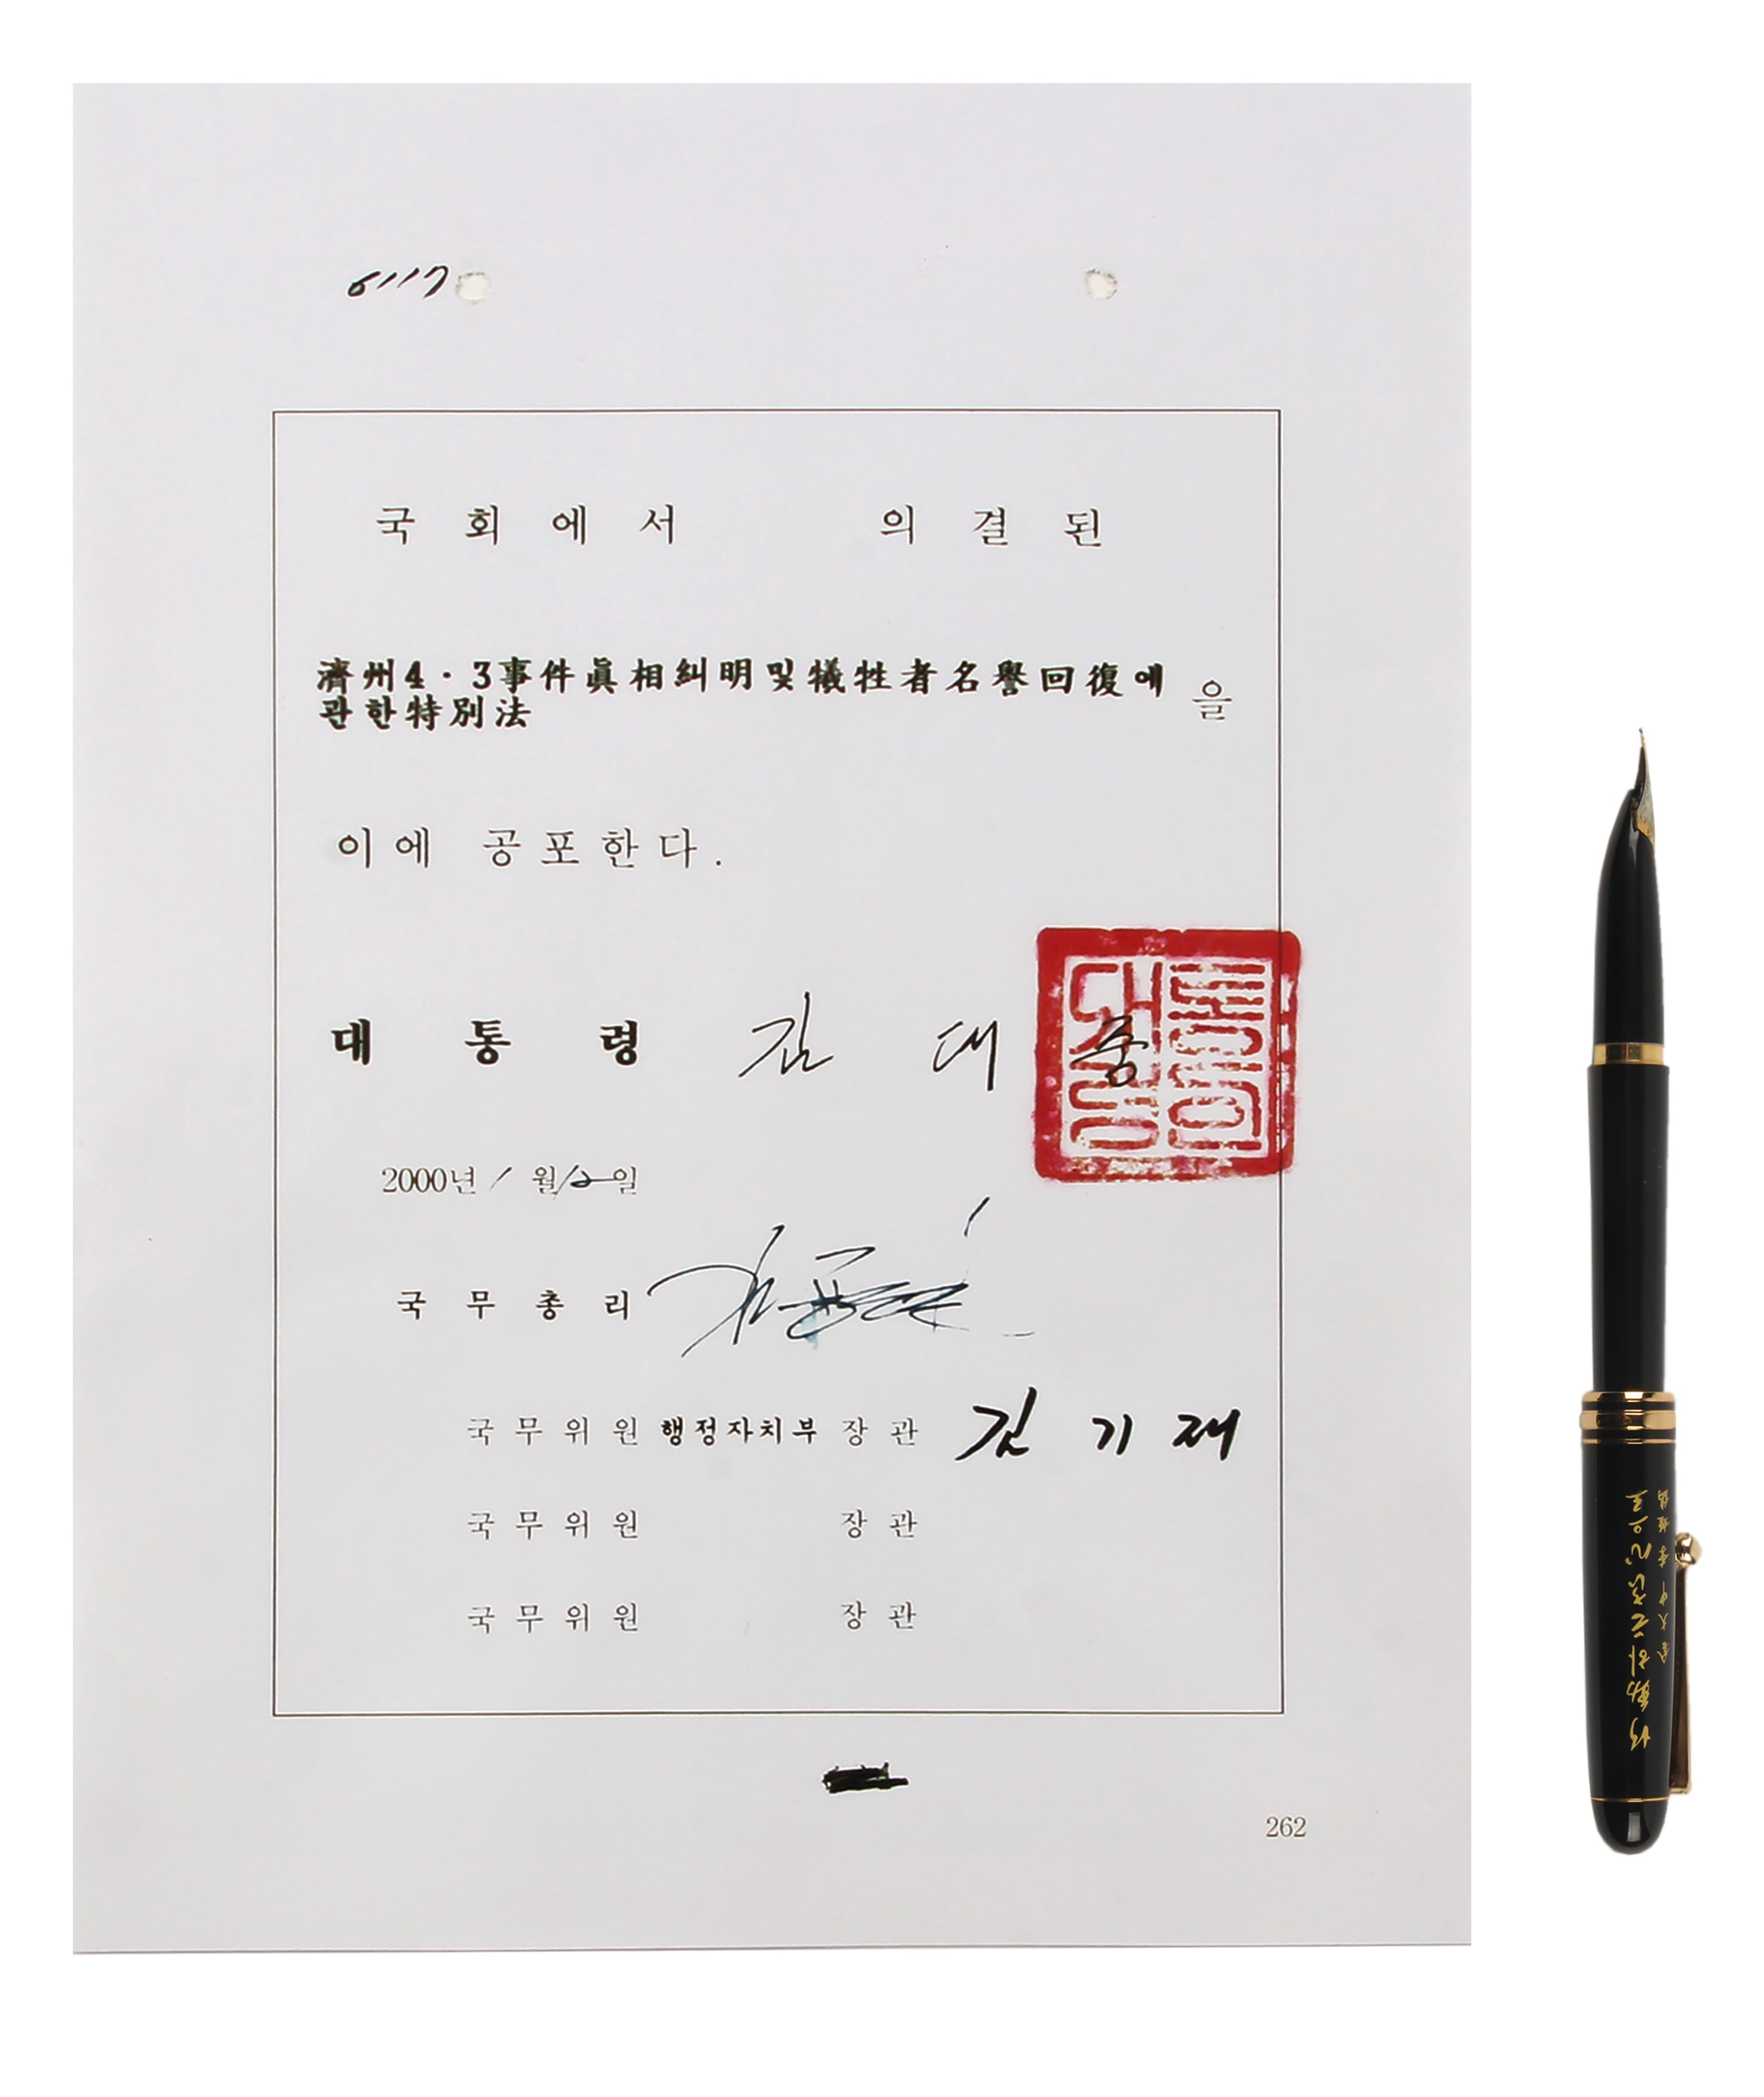 6117
국 회 에 서 의 결 된
濟州4·3事件眞相糾明및犧牲者名譽回復에
관한特別法 을
이에 공포한다.
대 통 령 김 대 중
대통령의인
2000년 1 월 12 일
국 무 총 리
국 무 위 원 행정자치부 장 관 김 기 재
국 무 위 원 장 관
국 무 위 원 장 관
262
金大中 李姬鎬